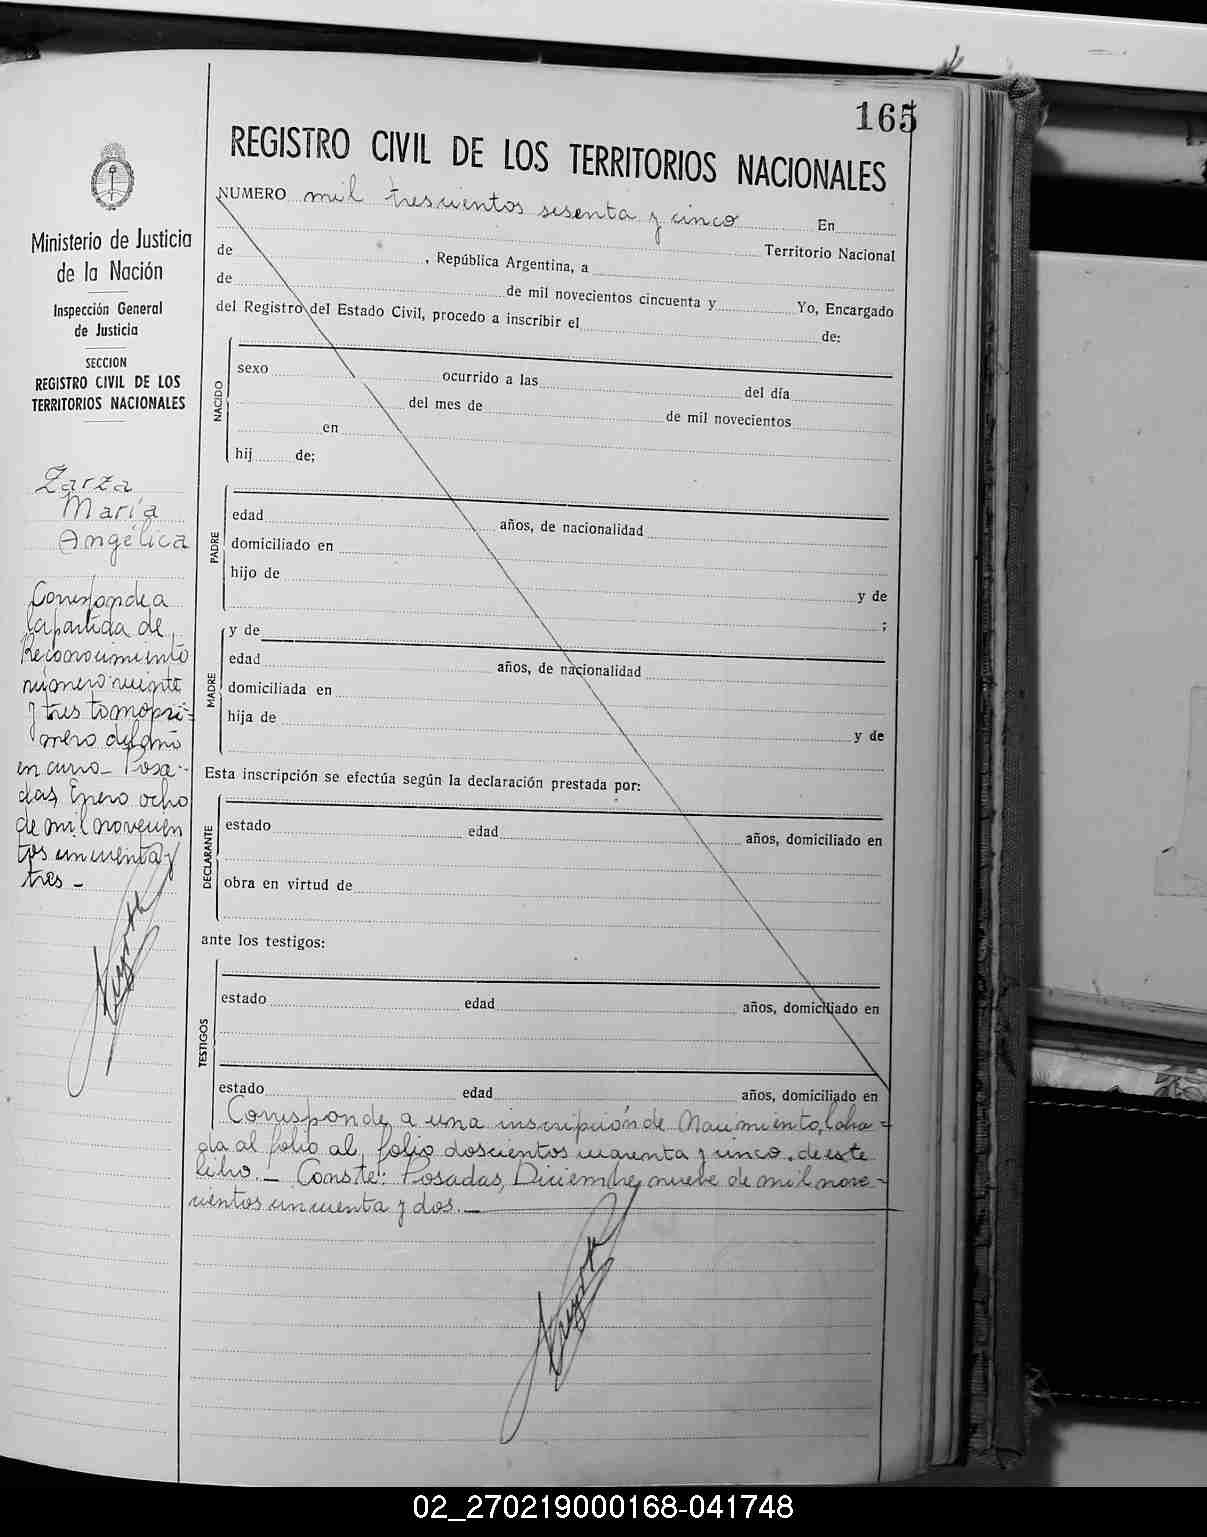 165
REGISTRO CIVIL DE LOS TERRITORIOS NACIONALES
NUMERO mil trescientos sesenta y cinco En
Territorio Nacional
de , República Argentina, a
de de mil novecientos cincuenta y Yo, Encargado
del Registro del Estado Civil, procedo a inscribir el de:
NACIDO
sexo ocurrido a las del día
del mes de de mil novecientos
en
hij de;
PADRE
edad años, de nacionalidad
domiciliado en
hijo de
y de
;
MADRE
y de
edad años, de nacionalidad
domiciliada en
hija de
y de
Esta inscripción se efectúa según la declaración prestada por:
DECLARANTE
estado edad años, domiciliado en
obra en virtud de
ante los testigos:
TESTIGOS
estado edad años, domiciliado en
estado edad años, domiciliado en
Corresponde a una inscripción de Nacimiento, labra-
da al folio al folio doscientos cuarenta y cinco de este
libro.- Conste: Posadas, Diciembre nueve de mil nove-
cientos cincuenta y dos.-
Ministerio de Justicia
de la Nación
Inspección General
de Justicia
SECCION
REGISTRO CIVIL DE LOS
TERRITORIOS NACIONALES
Zarza
María
Angélica
Corresponde a
la partida de
Reconocimiento
número veinte
y tres tomo pri-
mero del año
en curso- Posa-
das, Enero ocho
de mil novecien
tos cincuenta y
tres-
02_270219000168-041748